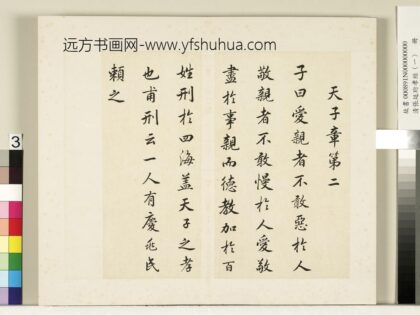 远方书画网-www.yfshuhua.com
天子章第二
子曰愛親者不敢惡於人
敬親者不敢慢於人愛敬
盡於事親而德教加於百
姓刑於四海盖天子之孝
也甫刑云一人有慶兆民
賴之
故書000891N000000000
3